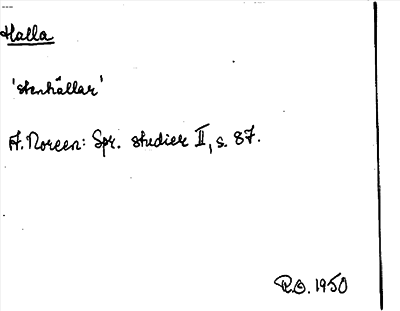 Halla
'stenhällar'
A. Noreen: Spr. studier II, s. 87.
R.O. 1950